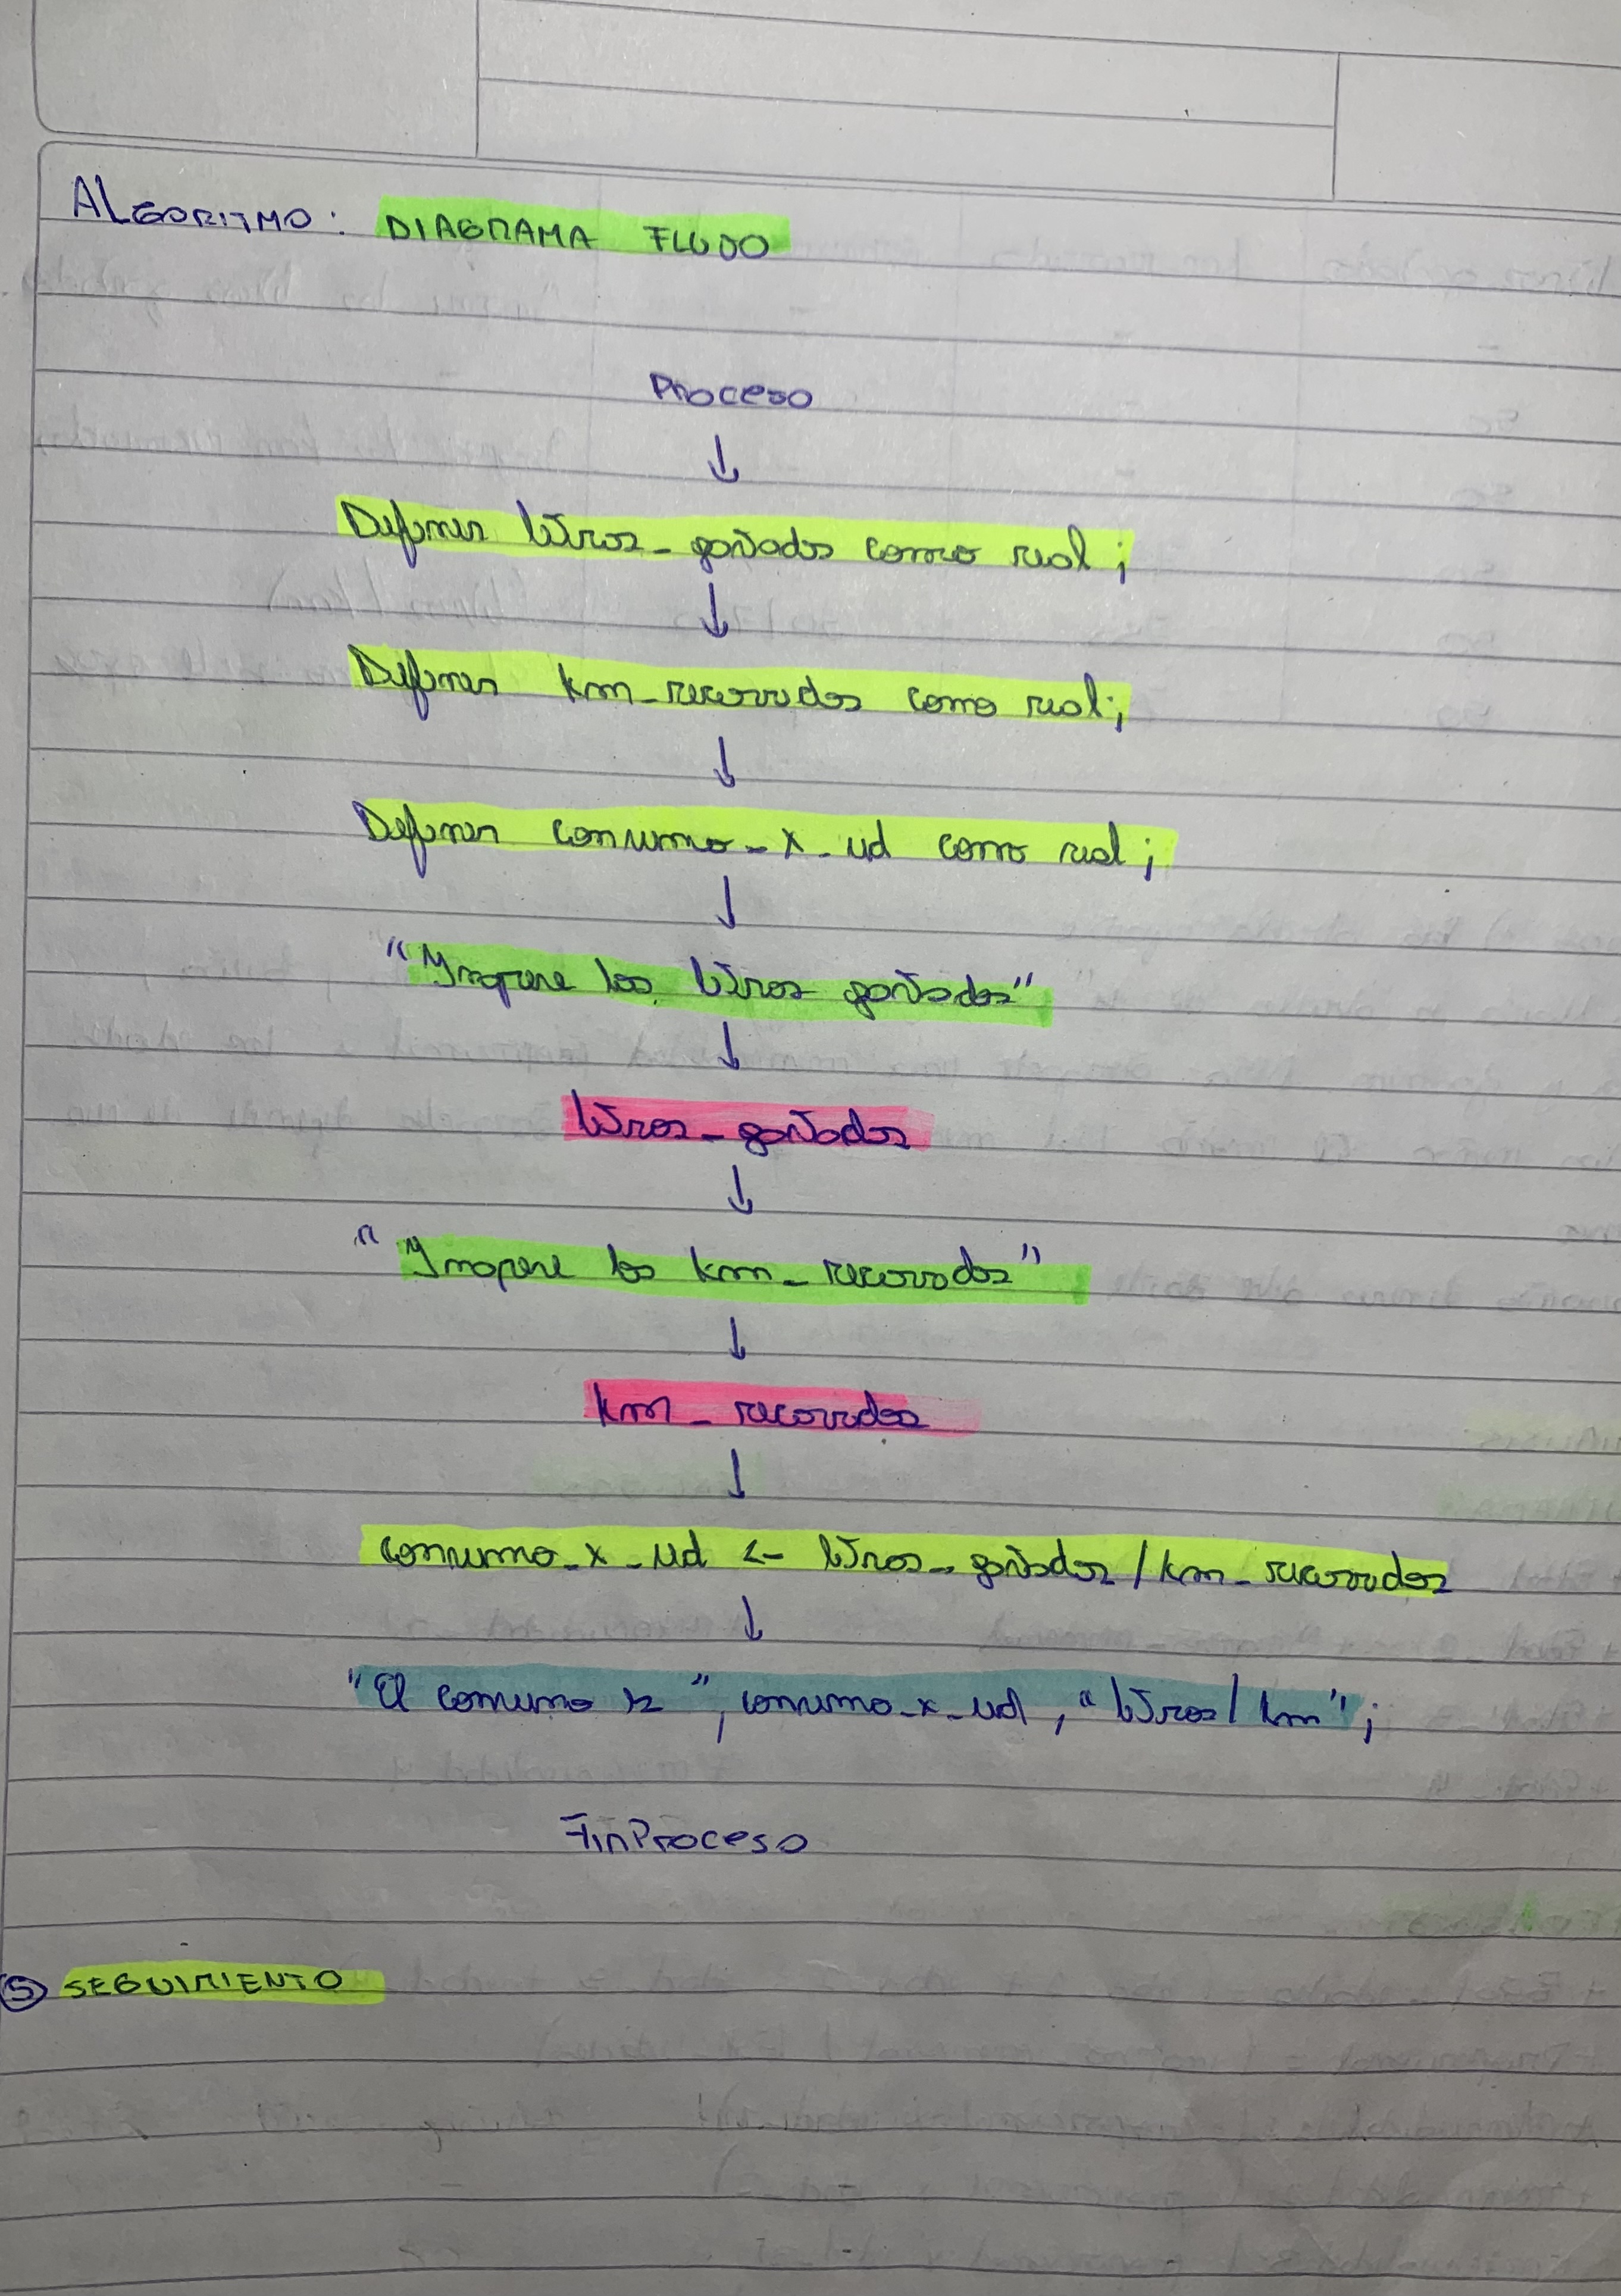 ALGORITMO: DIAGRAMA FLUJO
Proceso
↓
Definir litros_gastados como real;
↓
Definir km_recorridos como real;
↓
Definir consumo_x_ud como real;
↓
"Ingrese los litros gastados"
↓
litros_gastados
↓
"Ingrese los km_recorridos"
↓
km_recorridos
↓
consumo_x_ud <- litros_gastados / km_recorridos
↓
"El consumo es", consumo_x_ud, "litros/km";
FinProceso
5 SEGUIMIENTO